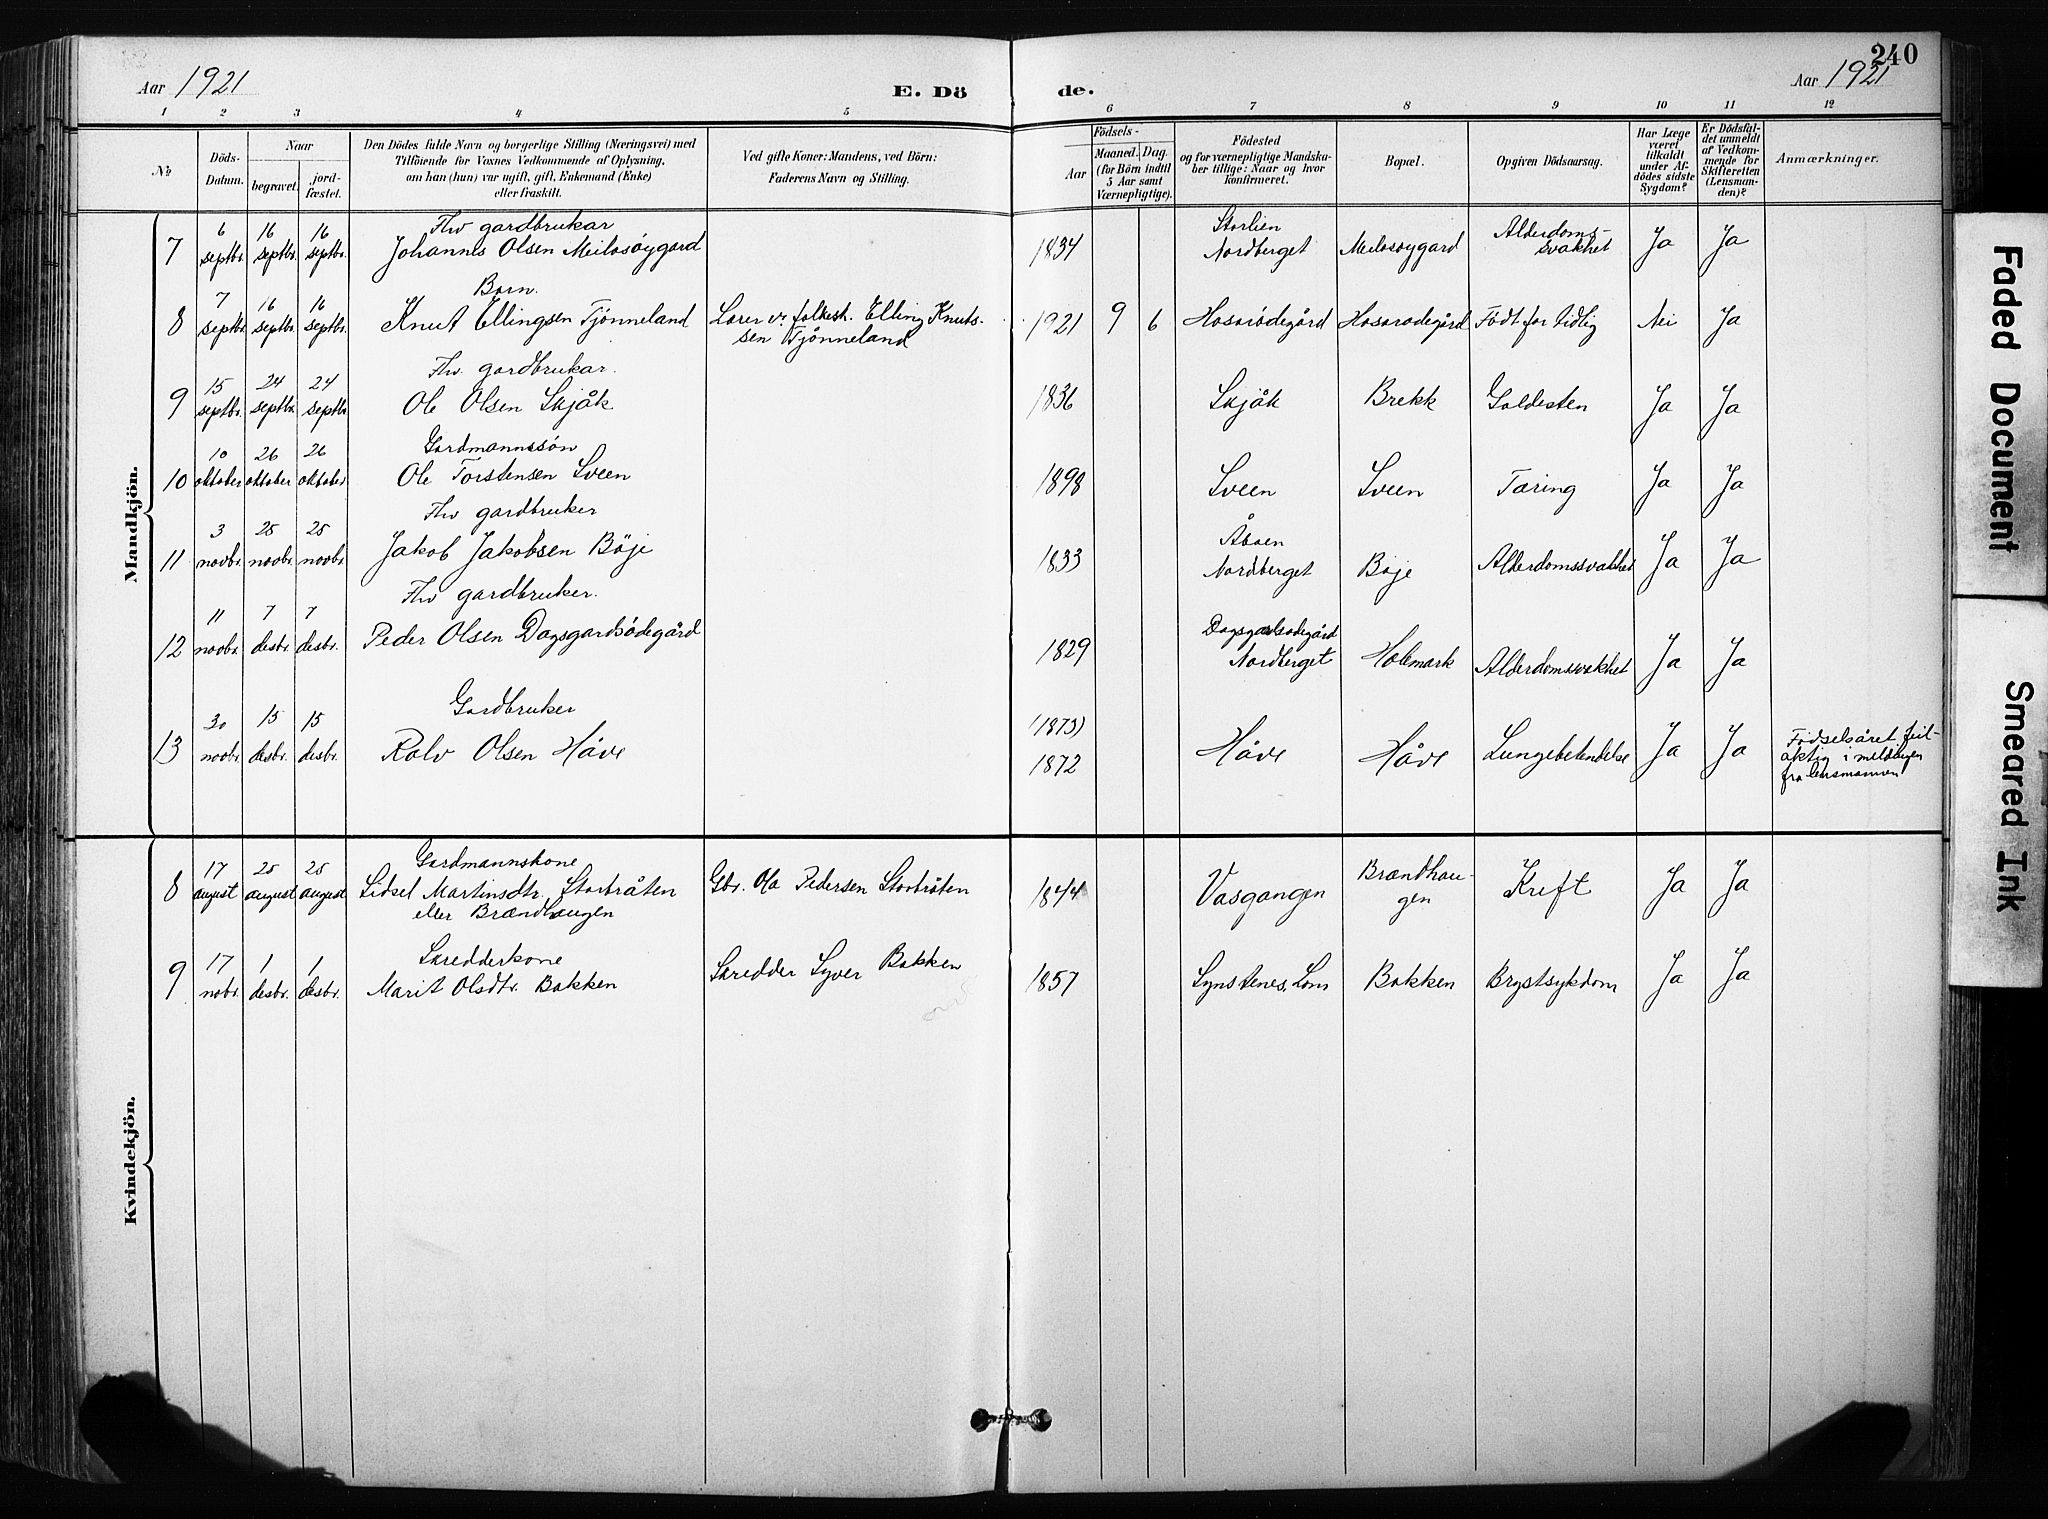 240
Aar 1921
E. Dö
de.
Aar 1921
1 2 3 4 5 6 7 8 9 10 11 12
№
Döds-
Datum.
Naar
begravet.
jord-
fæstet.
Den Dödes fulde Navn og borgerlige Stilling (Næringsvei) med
Tilföiende for Voxnes Vedkommende af Oplysning,
om han (hun) var ugift, gift, Enkemand (Enke)
eller fraskilt.
Ved gifte Koner: Mandens, ved Börn:
Faderens Navn og Stilling.
Födsels-
Aar
Maaned. Dag.
(for Börn indtil
5 Aar samt
Værnepligtige).
Födested
og for værnepligtige Mandska-
ber tillige: Naar og hvor
konfirmeret.
Bopæl.
Opgiven Dödsaarsag.
Har Læge
været
tilkaldt
under Af-
dödes sidste
Sygdom?
Er Dödsfal-
det anmeldt
af Vedkom-
mende for
Skifteretten
(Lensman-
den)?
Anmærkninger.
Mandkjön.
7
6 septbr.
16 septbr.
16 septbr.
Fhv gardbrukar
Johannes Olsen Meilosøygard
1834
Storlien
Nordberget
Meilosøygard
Alderdoms-
svakhet
Ja
Ja
8
7 septbr.
16 septbr.
16 septbr.
Barn.
Knut Ellingsen Tjønneland
Lærer v. folkesk. Elling Knuts-
sen Tjønneland
1921
9
6
Født for tidlig
Nei
Ja
9
15 septbr.
24 septbr.
24 septbr.
Fhv. gardbrukar.
Ole Olsen Skjåk
1836
Skjåk
Brekk
Galdesten
Ja
Ja
10
10 oktober
26 oktober
26 oktober
Gardmannssøn
Ole Torstensen Sveen
1898
Sveen
Sveen
Tæring
Ja
Ja
11
3 novbr.
25 novbr.
25 novbr.
Fhv gardbruker
Jakob Jakobsen Böje
1833
Nordberget
Böje
Alderdomssvakhet
Ja
Ja
12
11 novbr.
7 desbr.
7 desbr.
Fhv gardbruker.
Peder Olsen Dagsgardsödegård
1829
Dagsgardsödegård
Nordberget
Holemark
Alderdomssvakhet
Ja
Ja
13
30 novbr.
15 desbr.
15 desbr.
Gardbruker
Rolv Olsen Håve
(1873)
1872
Håve
Håve
Lungebetendelse
Ja
Ja
Födselsåret feil-
aktig i meldingen
fra lensmannen
Kvindekjön.
8
17 august
25 august
25 august
Gardmannskone
Sidsel Martinsdtr. Storbråten
eller Brændhaugen
Gbr. Ola Pedersen Storbråten
1844
Vasgangen
Brændhau-
gen
Kreft
Ja
Ja
9
17 nobr.
1 desbr.
1 desbr.
Skredderkone
Marit Olsdtr. Bakken
Skredder Syver Bakken
1857
Synstenes, Lom
Bakken
Brystsykdom
Ja
Ja
Faded Document
Smeared Ink